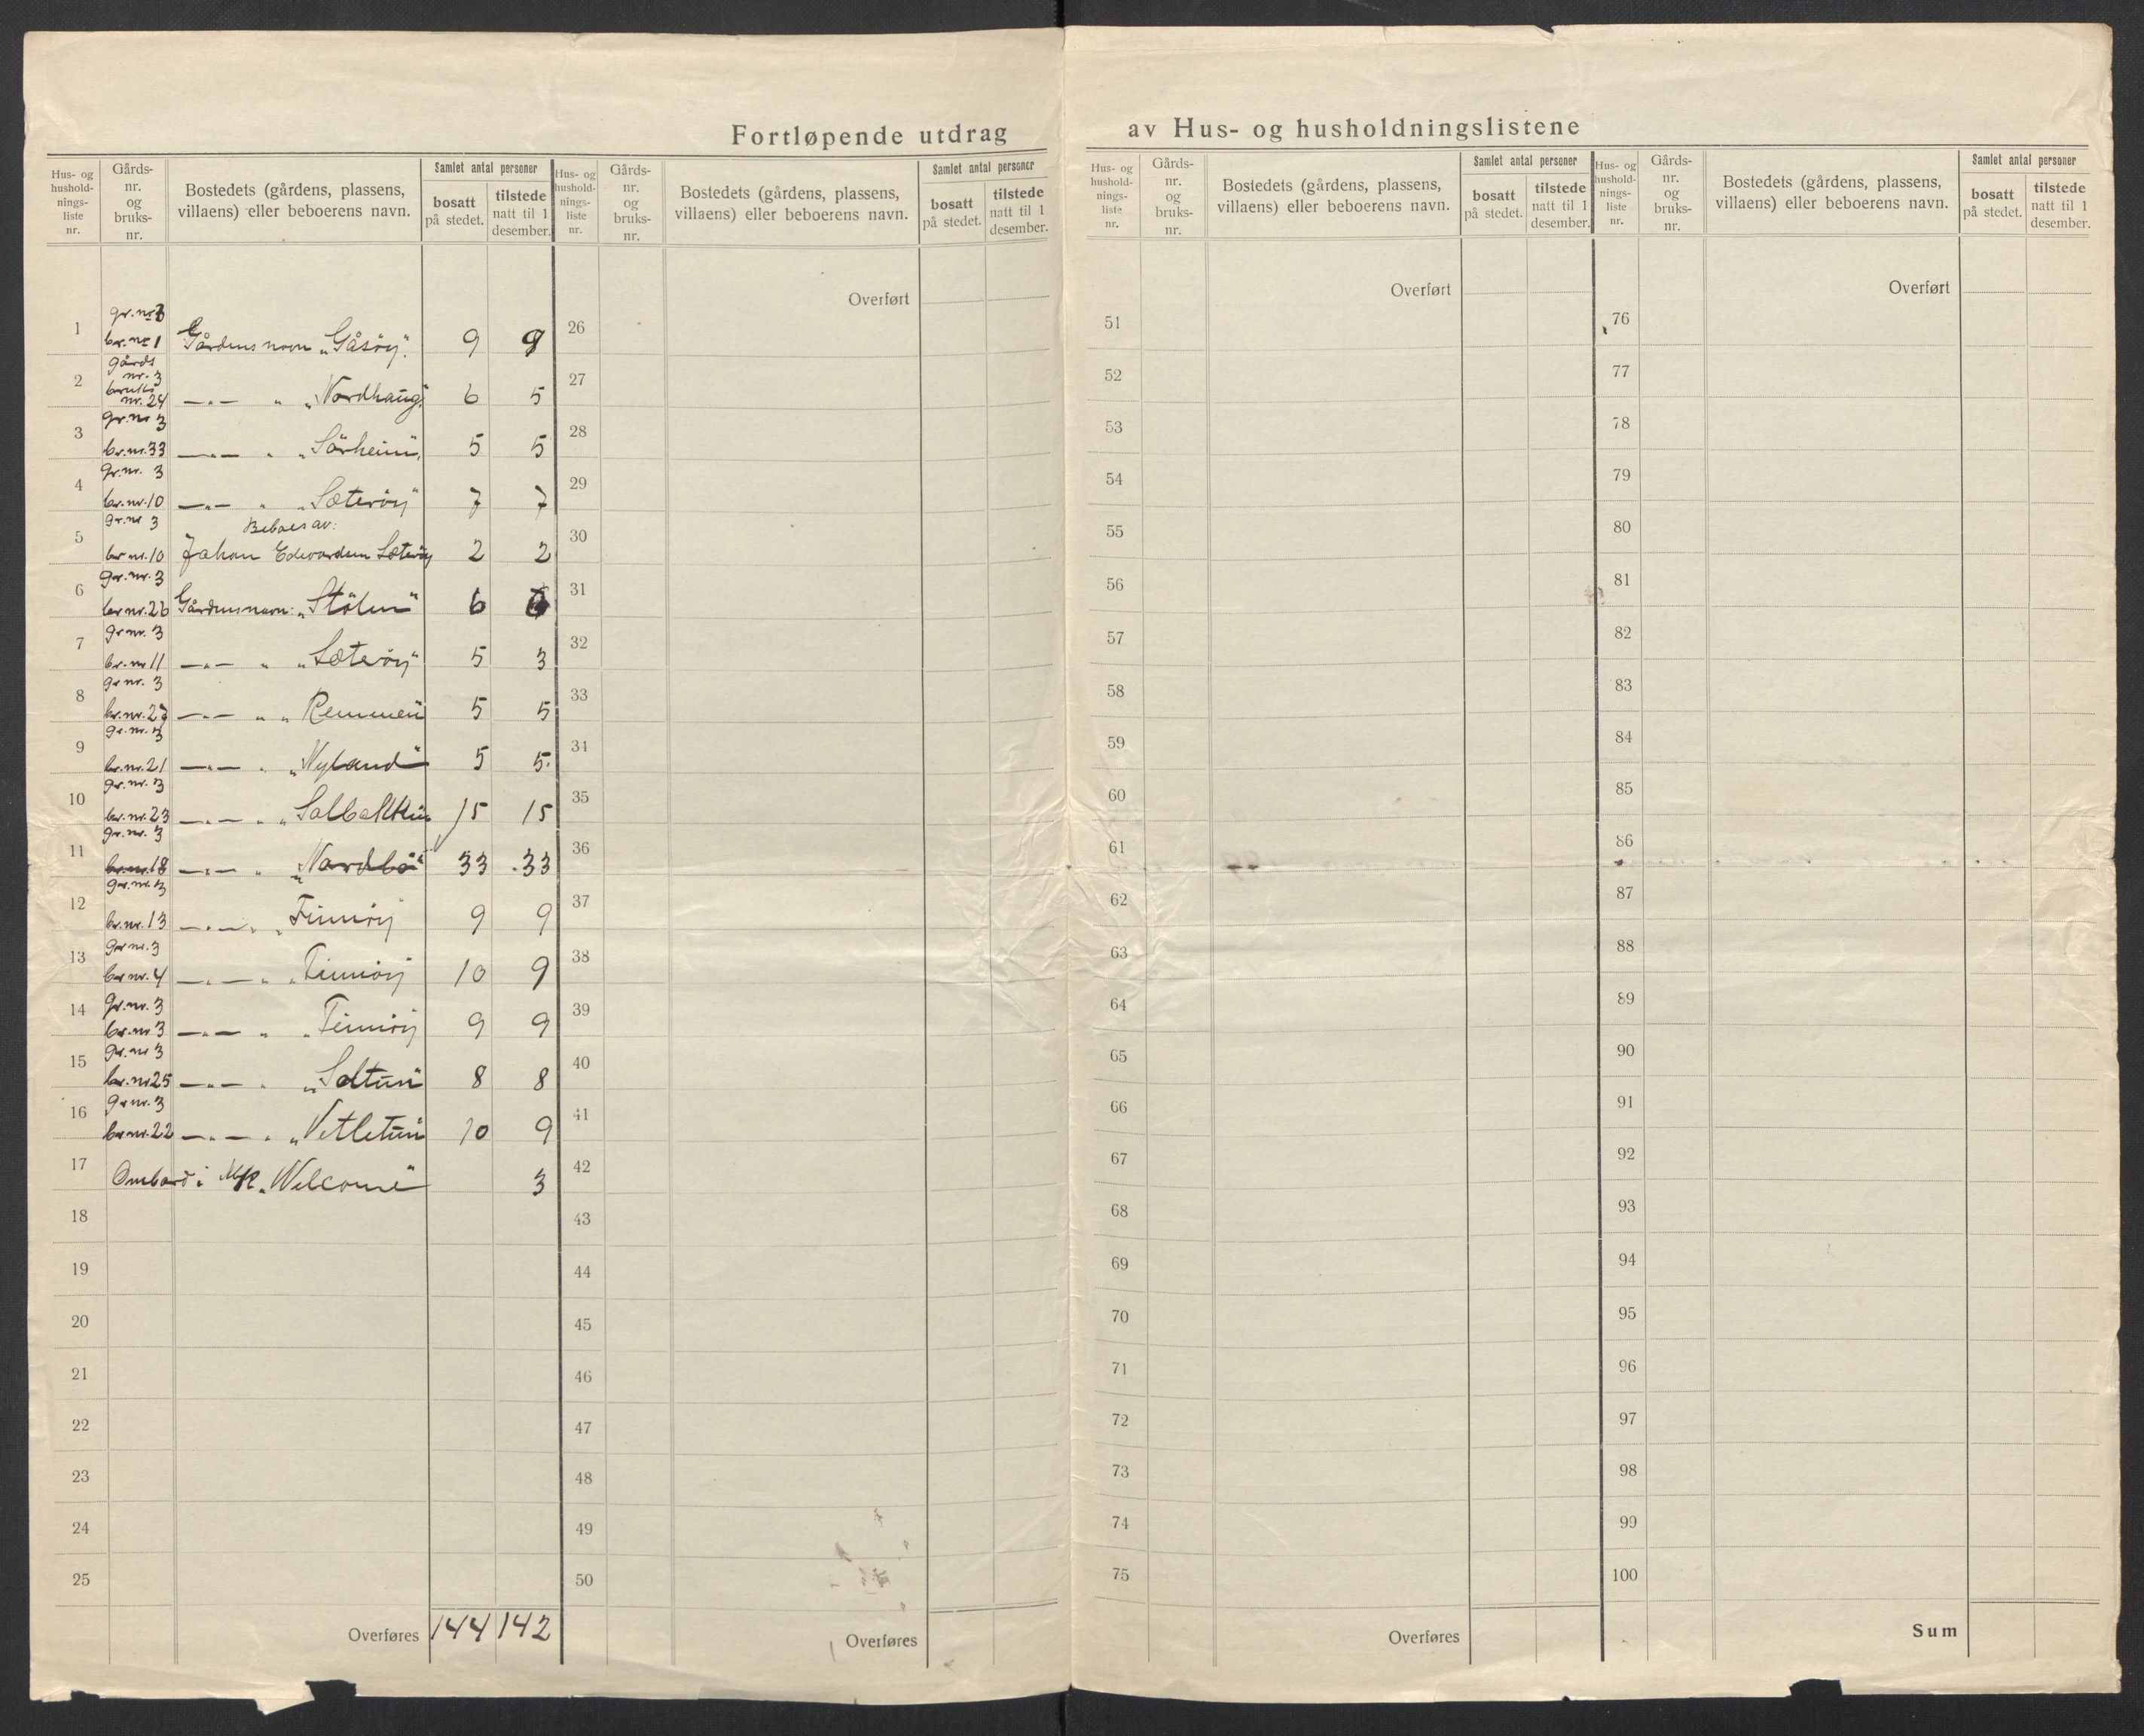 Fortløpende utdrag av Hus- og husholdningslistene
Hus- og hushold-nings-liste nr. Gårds-nr. og bruks-nr. Bostedets (gårdens, plassens, villaens) eller beboerens navn. Samlet antal personer bosatt på stedet. tilstede natt til 1 desember.
Hus- og hushold-nings-liste nr. Gårds-nr. og bruks-nr. Bostedets (gårdens, plassens, villaens) eller beboerens navn. Samlet antal personer bosatt på stedet. tilstede natt til 1 desember.
Hus- og hushold-nings-liste nr. Gårds-nr. og bruks-nr. Bostedets (gårdens, plassens, villaens) eller beboerens navn. Samlet antal personer bosatt på stedet. tilstede natt til 1 desember.
Hus- og hushold-nings-liste nr. Gårds-nr. og bruks-nr. Bostedets (gårdens, plassens, villaens) eller beboerens navn. Samlet antal personer bosatt på stedet. tilstede natt til 1 desember.
1 gr. nr 3 br. nr 1 Gårdens navn „Gåsöy". 9 9
2 gårds nr. 3 bruks nr. 24 —„— „ „Nordhaug" 6 5
3 gr. nr 3 br. nr. 33 —„— „ „Sörheim" 5 5
4 gr. nr. 3 br. nr. 10 —„— „ „Sæteröy" 7 7
5 gr. nr 3 br nr. 10 Beboes av: Johan Edvardsen Sæteröy 2 2
6 gr. nr. 3 br nr. 26 Gårdens navn: „Stölen" 6
7 gr nr. 3 br. nr 11 —„— „ „Sæteröy" 5 3
8 gr nr. 3 br. nr. 27 —„— „ „Remmen" 5 5
9 gr. nr. 3 br. nr. 21 —„— „ „Nyland" 5 5
10 gr. nr. 3 br. nr. 23 —„— „ „Solbakken 15 15
11 gr. nr. 3 br. nr. 18 —„— „ „Nordbö" 33 33
12 gr. nr. 3 br. nr. 13 —„— „ „Finnöy 9 9
13 gr nr. 3 br nr. 4 —„— „ „Finnöy 10 9
14 gr. nr. 3 br. nr 3 —„— „ „Finnöy 9 9
15 gr. nr 3 br. nr 25 —„— „ „Soltun" 8 8
16 gr nr. 3 br nr. 22 —„— „ „Vetletun" 10 9
17 Ombord i M/K „Welcome" 3
18
19
20
21
22
23
24
25
Overføres 144 142
Overført
26
27
28
29
30
31
32
33
34
35
36
37
38
39
40
41
42
43
44
45
46
47
48
49
50
Overføres
Overført
51
52
53
54
55
56
57
58
59
60
61
62
63
64
65
66
67
68
69
70
71
72
73
74
75
Overføres
Overført
76
77
78
79
80
81
82
83
84
85
86
87
88
89
90
91
92
93
94
95
96
97
98
99
100
Sum